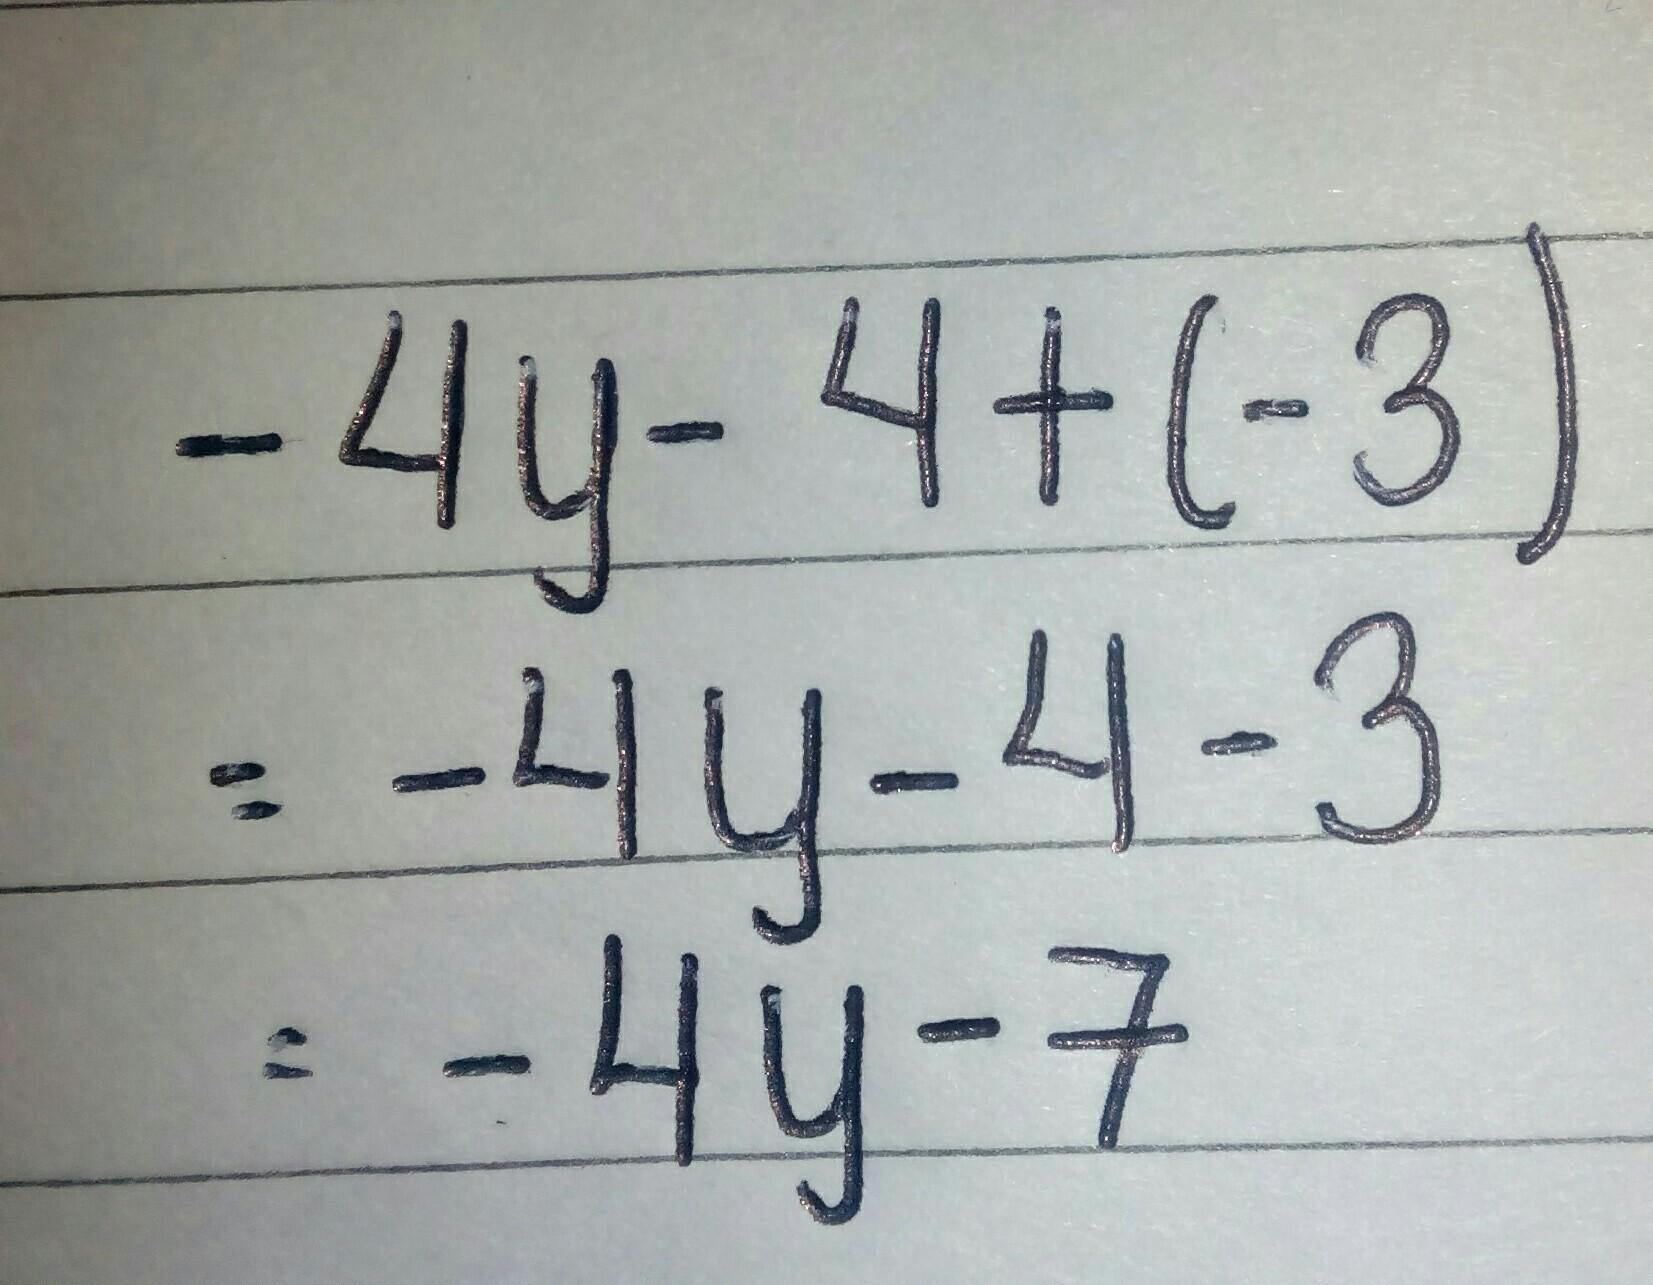 -4y- 4+(-3)
= -4y-4-3
= -4y-7